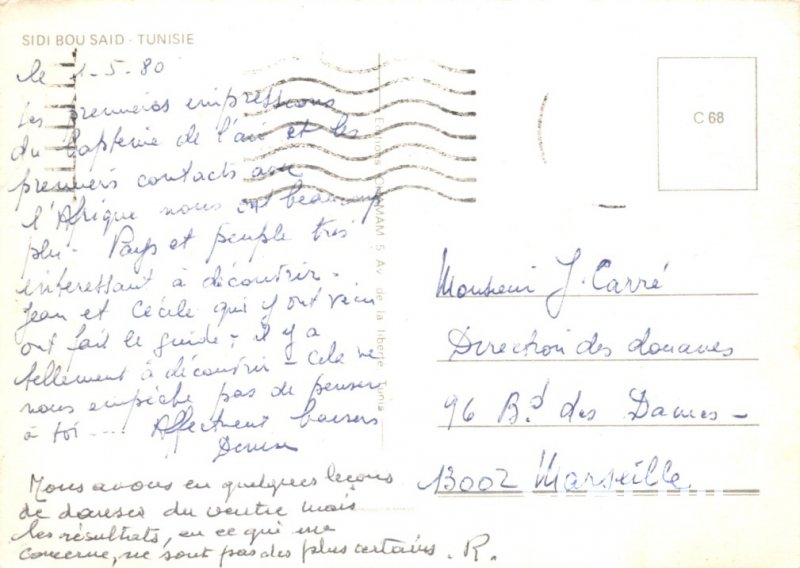 SIDI BOU SAID - TUNISIE
le 1-5-80
Les premières impressions
du baptême de l'air et les
premiers contacts avec
l'Afrique nous ont beaucoup
plu - Pays et peuple très
intéressant à découvrir -
Jean et Cécile qui y ont vécu
ont fait le guide ; il y a
tellement à découvrir - cela ne
nous empêche pas de penser
à toi ... Affectment baisers
Denise
Nous avons eu quelques leçons
de danses du ventre mais
les résultats, en ce qui me
concerne, ne sont pas des plus certains. R.
Editions MAM 5 Av. de la liberte Tunis
C 68
Monsieur J. Carré
Direction des douanes
96 B.d des Dames -
13002 Marseille